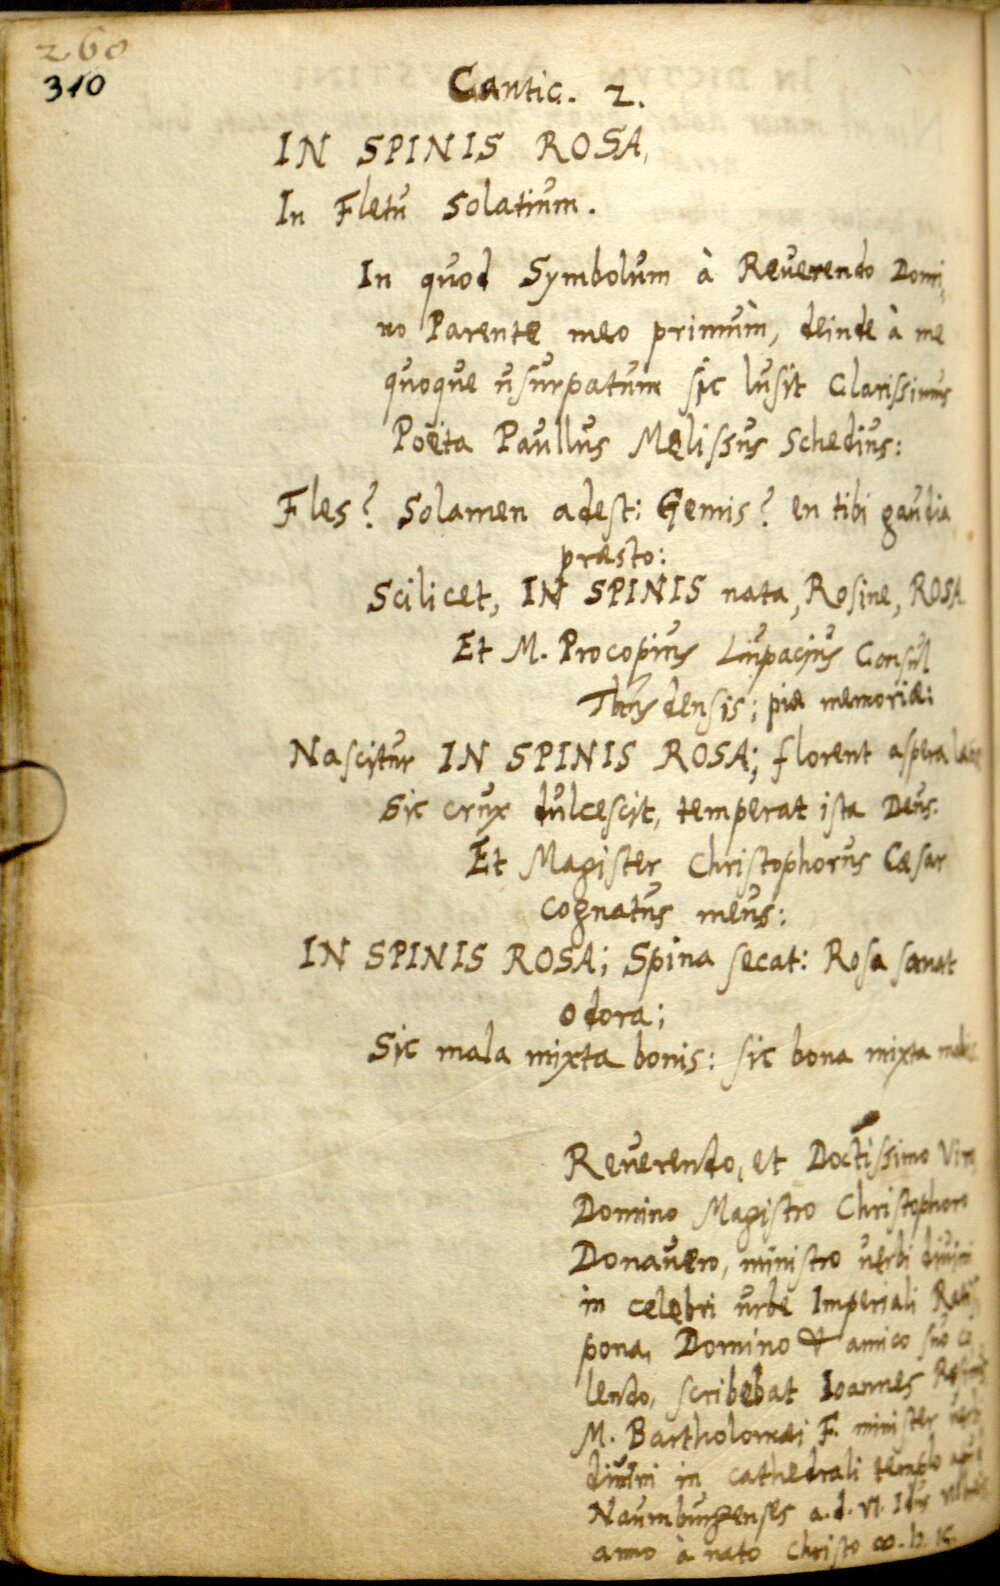 260
310
Cantic. 2.
IN SPINIS ROSA,
In Fletu Solatium.
In quod Symbolum à Reuerendo Domi,
no Parente meo primùm, deinde à me
quoque usurpatum sic lusit Clarissimus
Poëta Paullus Melissus Schedius:
Fles? Solamen adest: Gemis? en tibi gaudia
præsto:
Scilicet, IN SPINIS nata, Rosine, ROSA.
Et M. Procopius Lupacius Consul
densis; piæ memoriæ:
Nascitur IN SPINIS ROSA; florent aspera
Sic crux dulcescit, temperat ista Deus.
Et Magister Christophorus Cæsar
cognatus meus:
IN SPINIS ROSA; Spina secat: Rosa sanat
odora;
Sic mala mixta bonis: sic bona mixta malis.
Reuerendo, et Doctissimo Viro,
Domino Magistro Christophoro
Donauero, ministro uerbi diuini
in celebri urbe Imperiali Ratis
pona, Domino & amico suo co
lendo, scribebat Ioannes Rosinus
M. Bartholomæi F. minister uerbi
diuini in cathedrali templo apud
Naumburgenses a.d. VI. Idus
anno à nato Christo